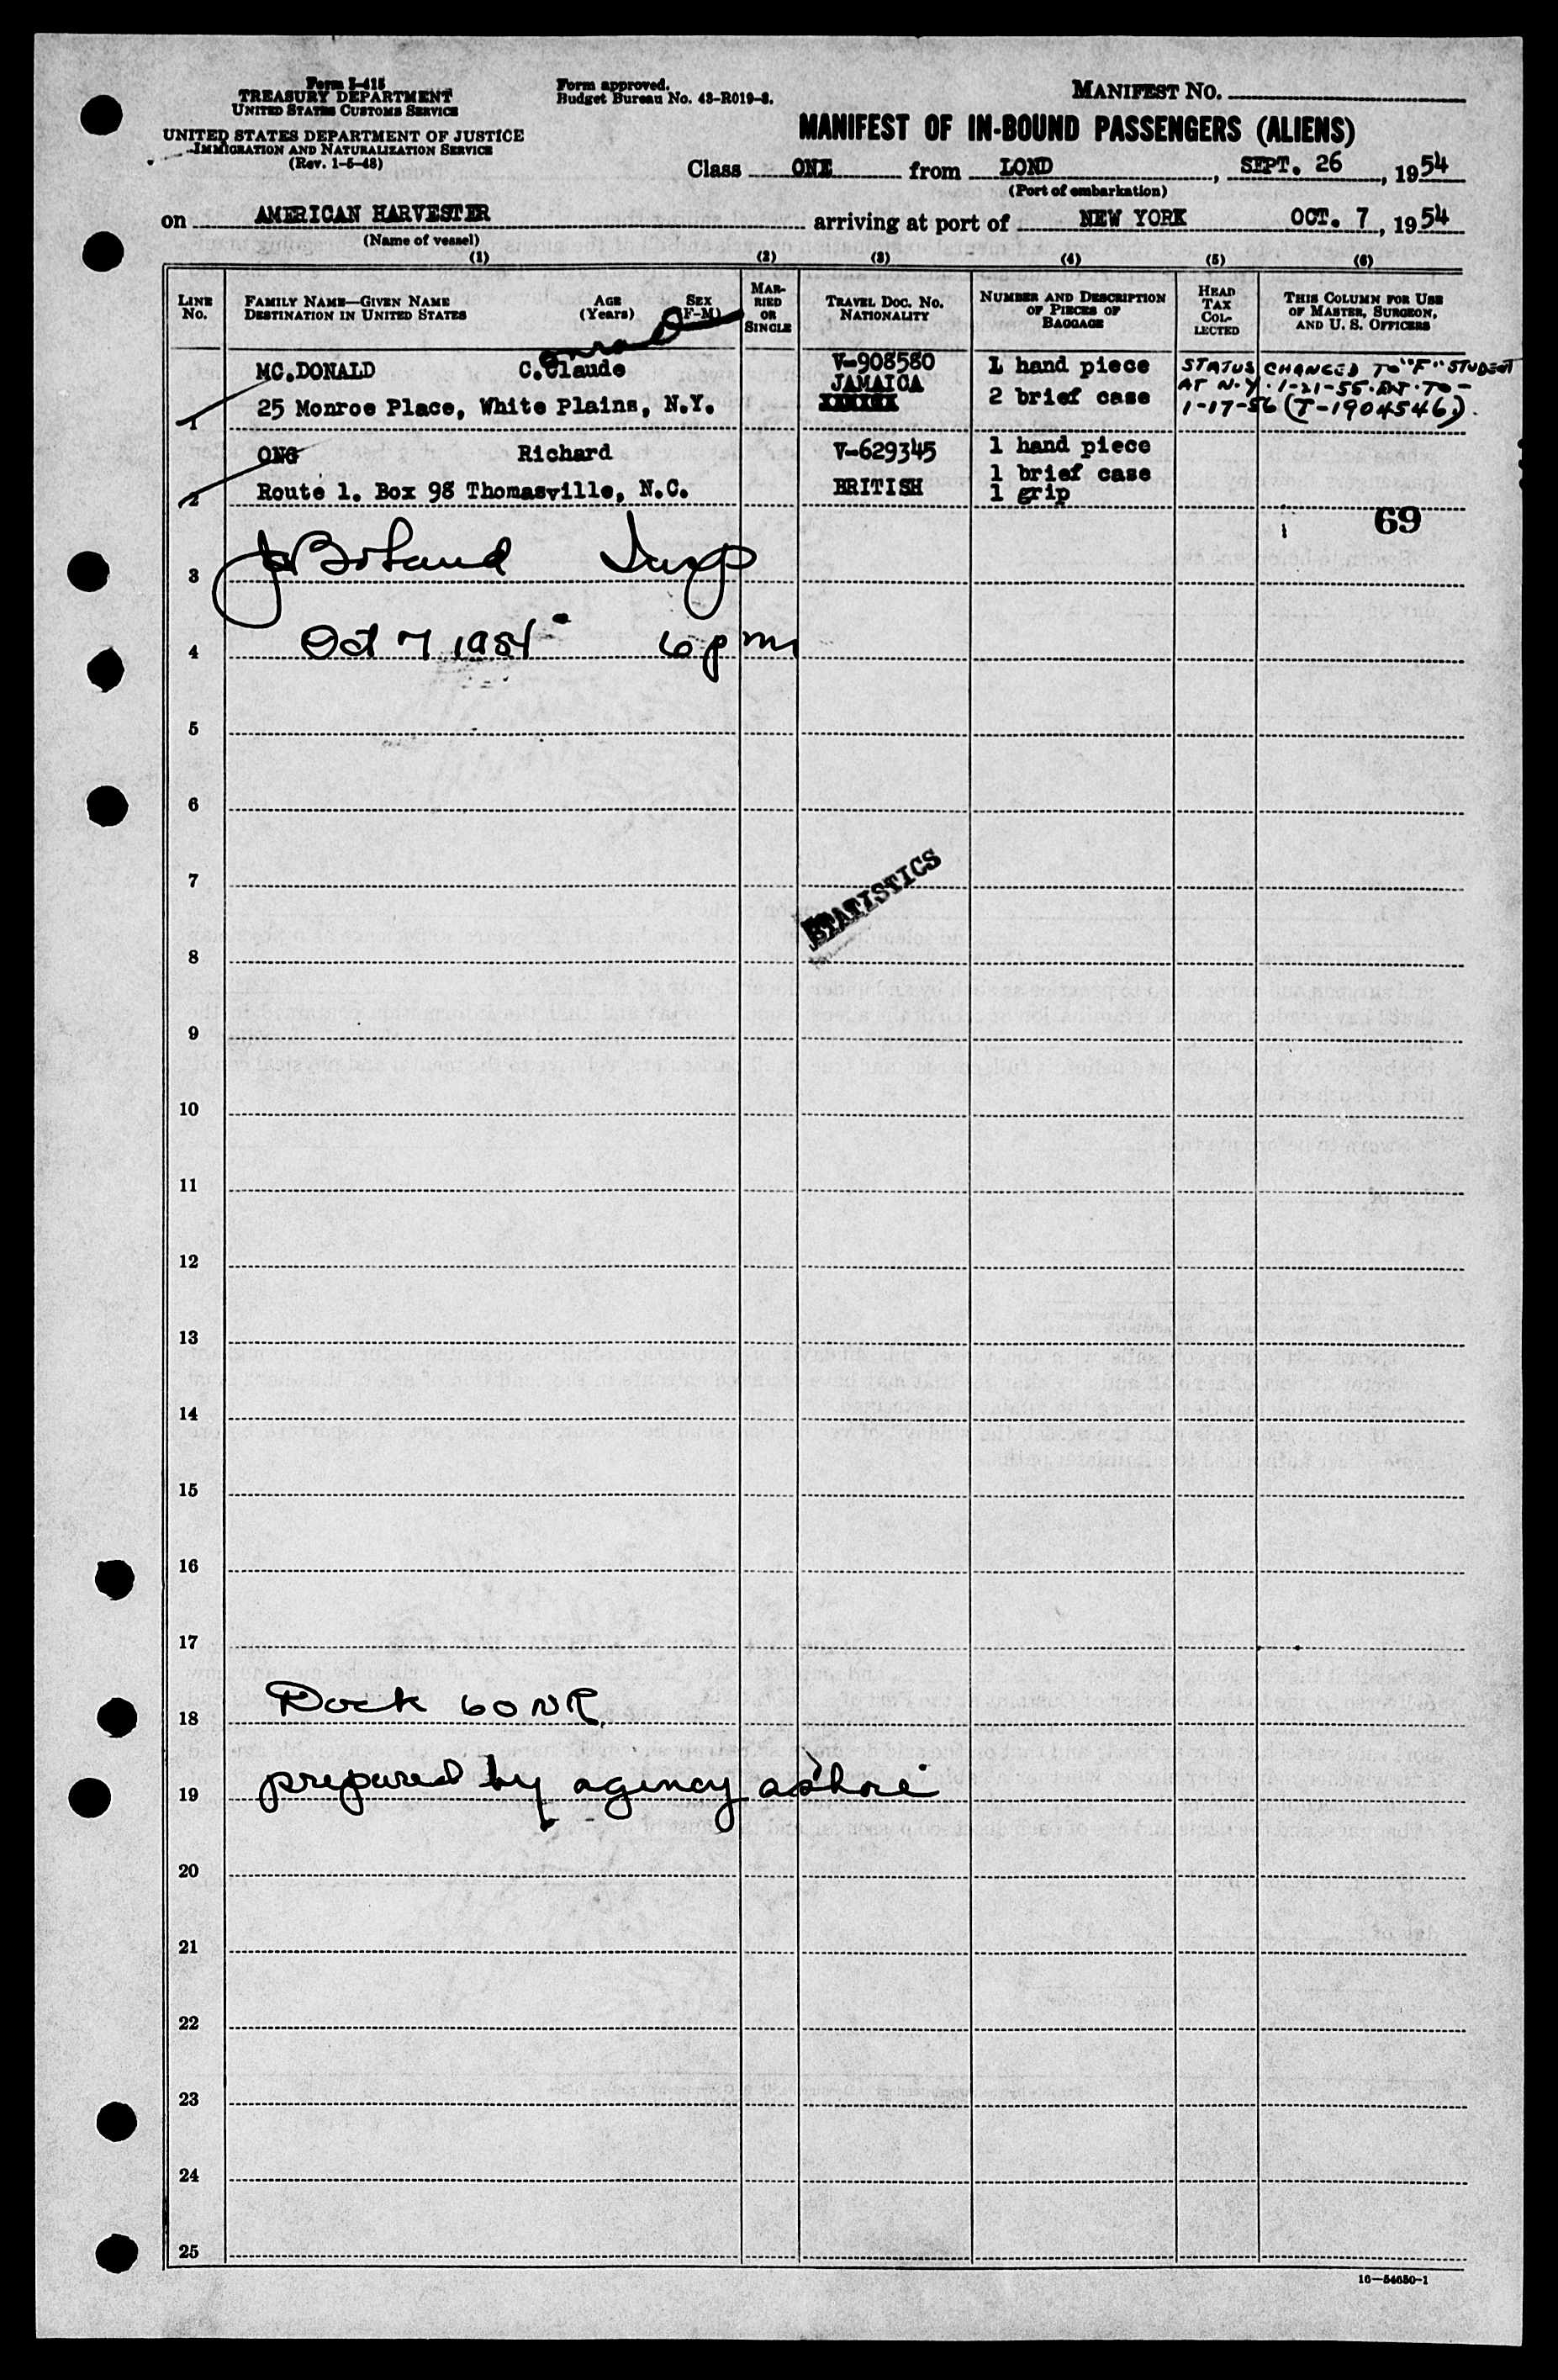 Form I-415
TREASURY DEPARTMENT
UNITED STATES CUSTOMS SERVICE
UNITED STATES DEPARTMENT OF JUSTICE
IMMIGRATION AND NATURALIZATION SERVICE
(Rev. 1-5-48)
Form approved.
Budget Bureau No. 43-R019-3.
MANIFEST NO.
MANIFEST OF IN-BOUND PASSENGERS (ALIENS)
Class ONE from LOND, SEPT. 26, 1954
(Port of embarkation)
on AMERICAN HARVESTER arriving at port of NEW YORK OCT. 7, 1954
(Name of vessel)
(1) (2) (3) (4) (5) (6)
LINE No.
FAMILY NAME—GIVEN NAME
DESTINATION IN UNITED STATES
AGE (Years)
SEX (F-M)
MARRIED OR SINGLE
TRAVEL DOC. NO. NATIONALITY
NUMBER AND DESCRIPTION OF PIECES OF BAGGAGE
HEAD TAX COLLECTED
THIS COLUMN FOR USE OF MASTER, SURGEON, AND U. S. OFFICERS
Conrad
MC.DONALD C.Claude V-908580 1 hand piece STATUS CHANGED TO "F" STUDENT
JAMAICA AT N.Y. 1-21-55. EXT. TO -
1 25 Monroe Place, White Plains, N.Y. 2 brief case 1-17-56 (T-1904546).
ONG Richard V-629345 1 hand piece
1 brief case
2 Route 1. Box 98 Thomasville, N.C. BRITISH 1 grip
69
3 Boland Insp
4 Oct 7 1954 6 pm
5
6
7
STATISTICS
8
9
10
11
12
13
14
15
16
17
18 Dock 60 NR.
19 prepared by agency ashore
20
21
22
23
24
25
16—54650-1